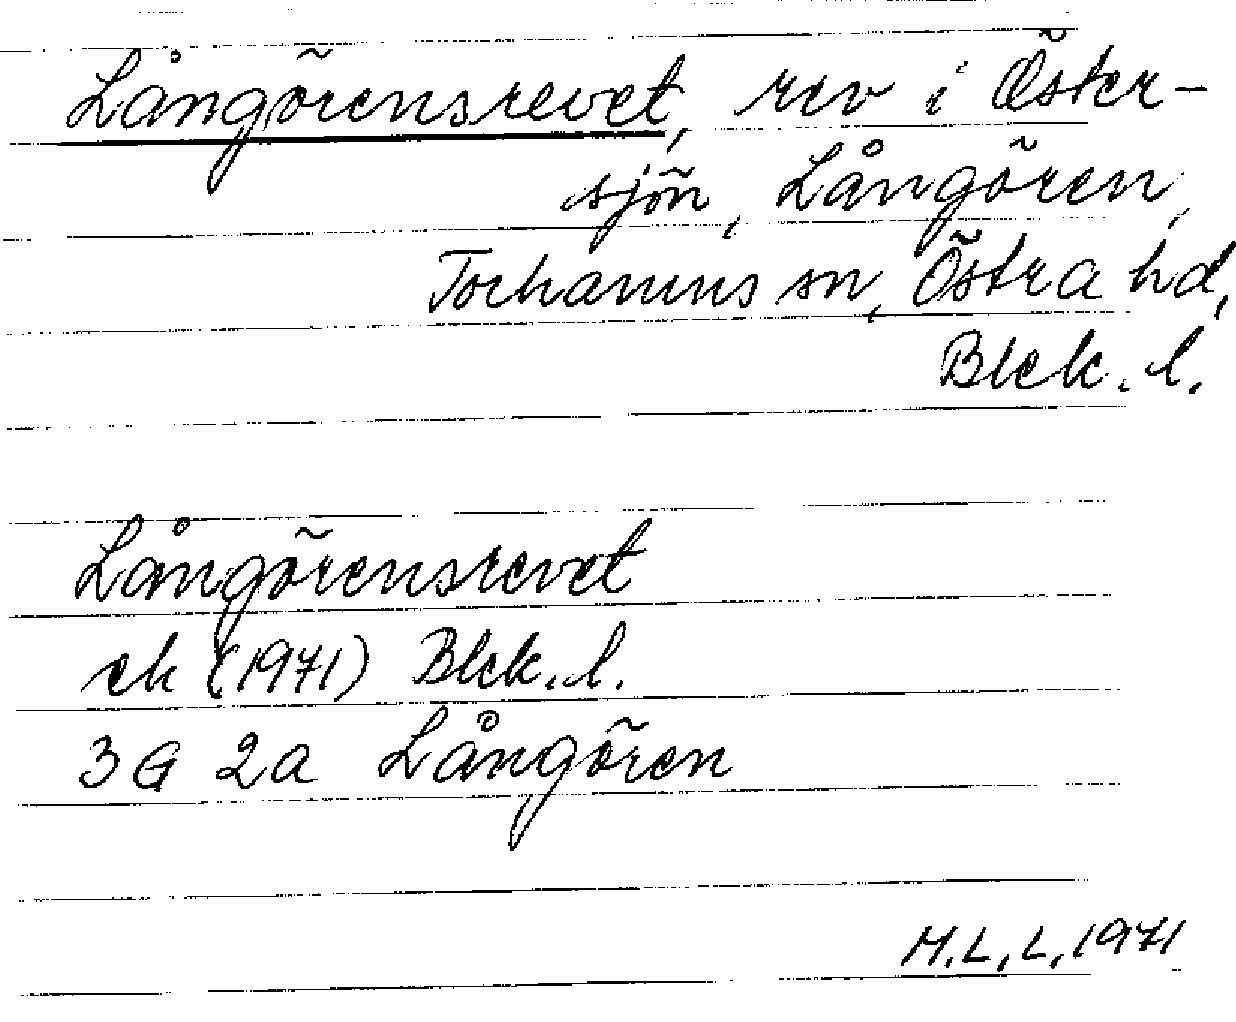 Långörensrevet, rev i Öster-
sjön, Långören,
Torhamns sn, Östra hd,
Blek. l.
Långörensrevet
ek (1971) Blek. l.
3G 2a Långören
M.L.L. 1971